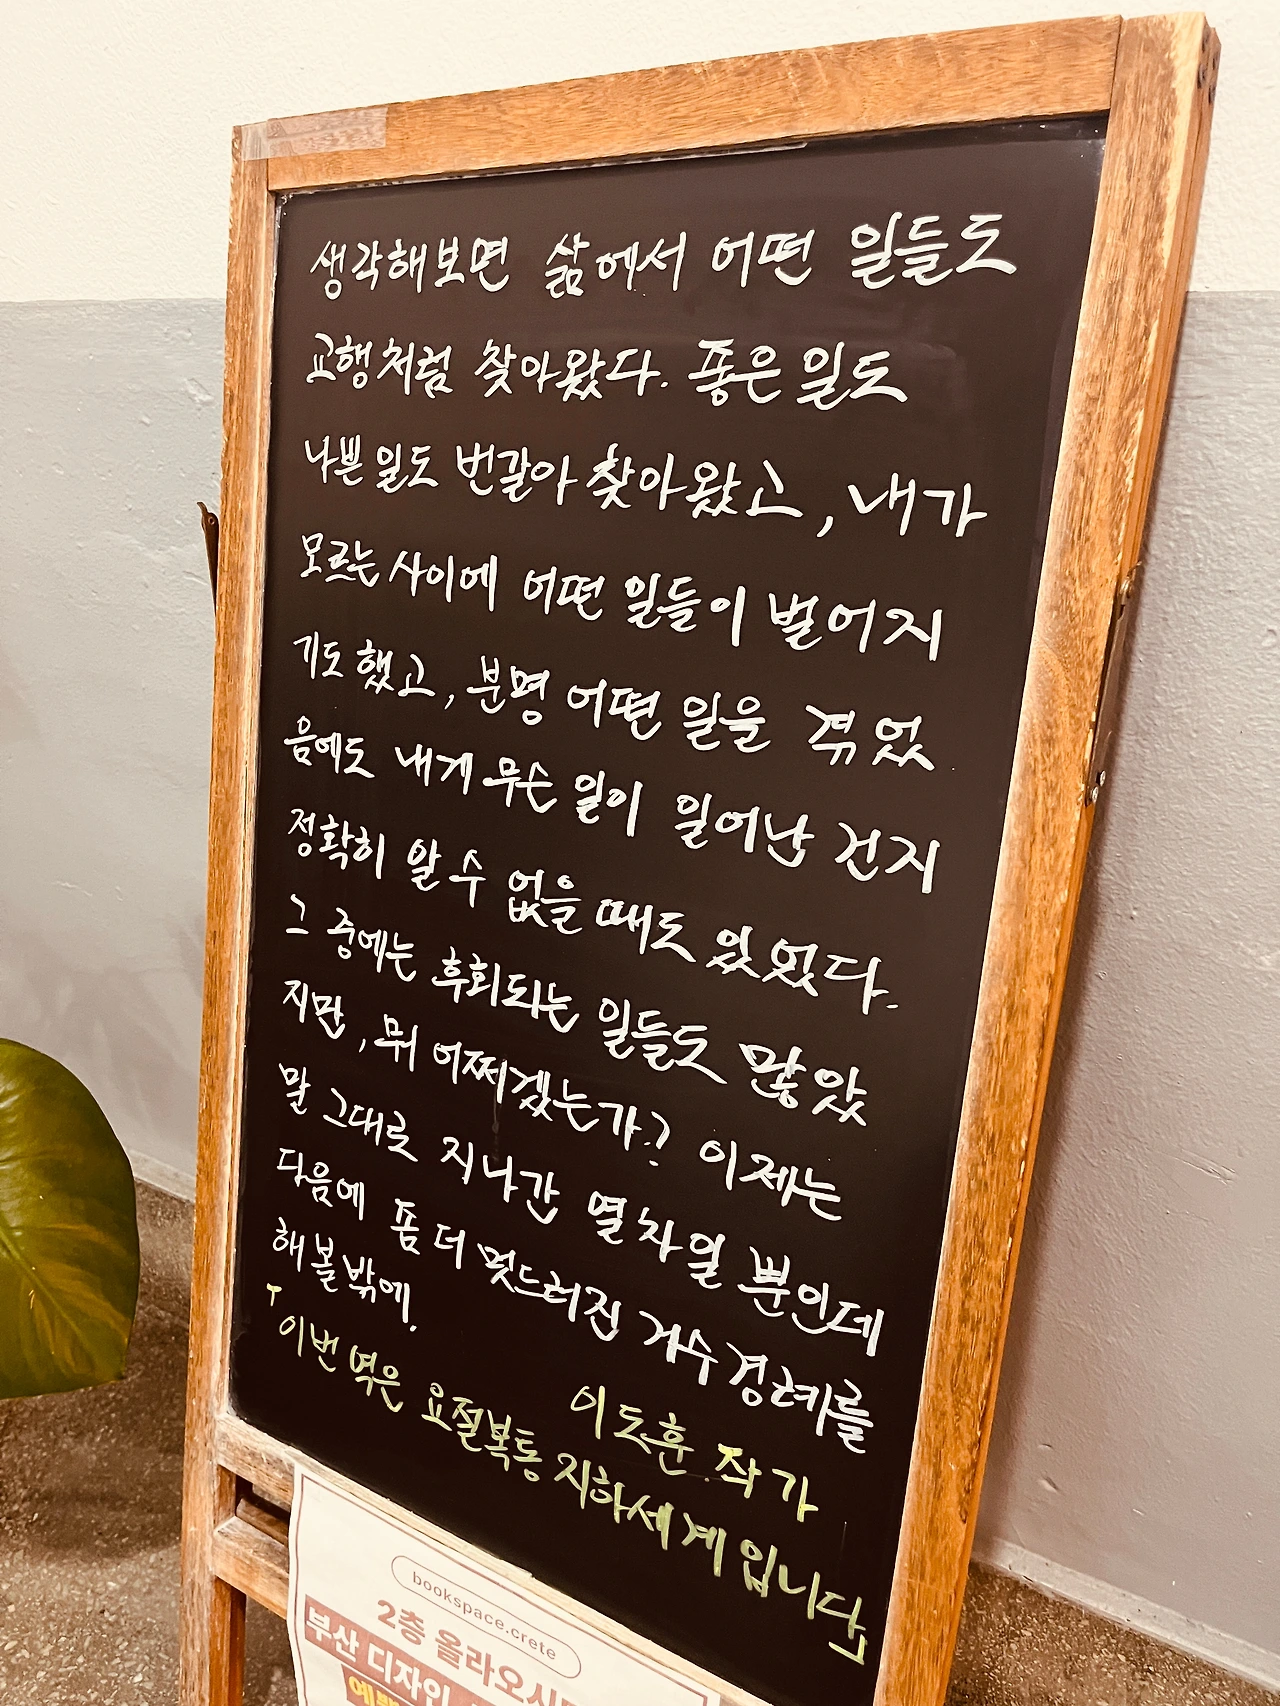 생각해보면 삶에서 어떤 일들도
교행처럼 찾아왔다. 좋은 일도
나쁜 일도 번갈아 찾아왔고, 내가
모르는 사이에 어떤 일들이 벌어지
기도 했고, 분명 어떤 일을 겪었
음에도 내게 무슨 일이 일어난 건지
정확히 알 수 없을 때도 있었다.
그 중에는 후회되는 일들도 많았
지만, 뭐 어찌겠는가? 이제는
말 그대로 지나간 열차일 뿐인데
다음에 좀 더 멋드러진 거수경례를
해볼밖에.
이도훈 작가
『이번 역은 요절복통 지하세계입니다』
bookspace.crete
2층 올라오시
부산 디자인